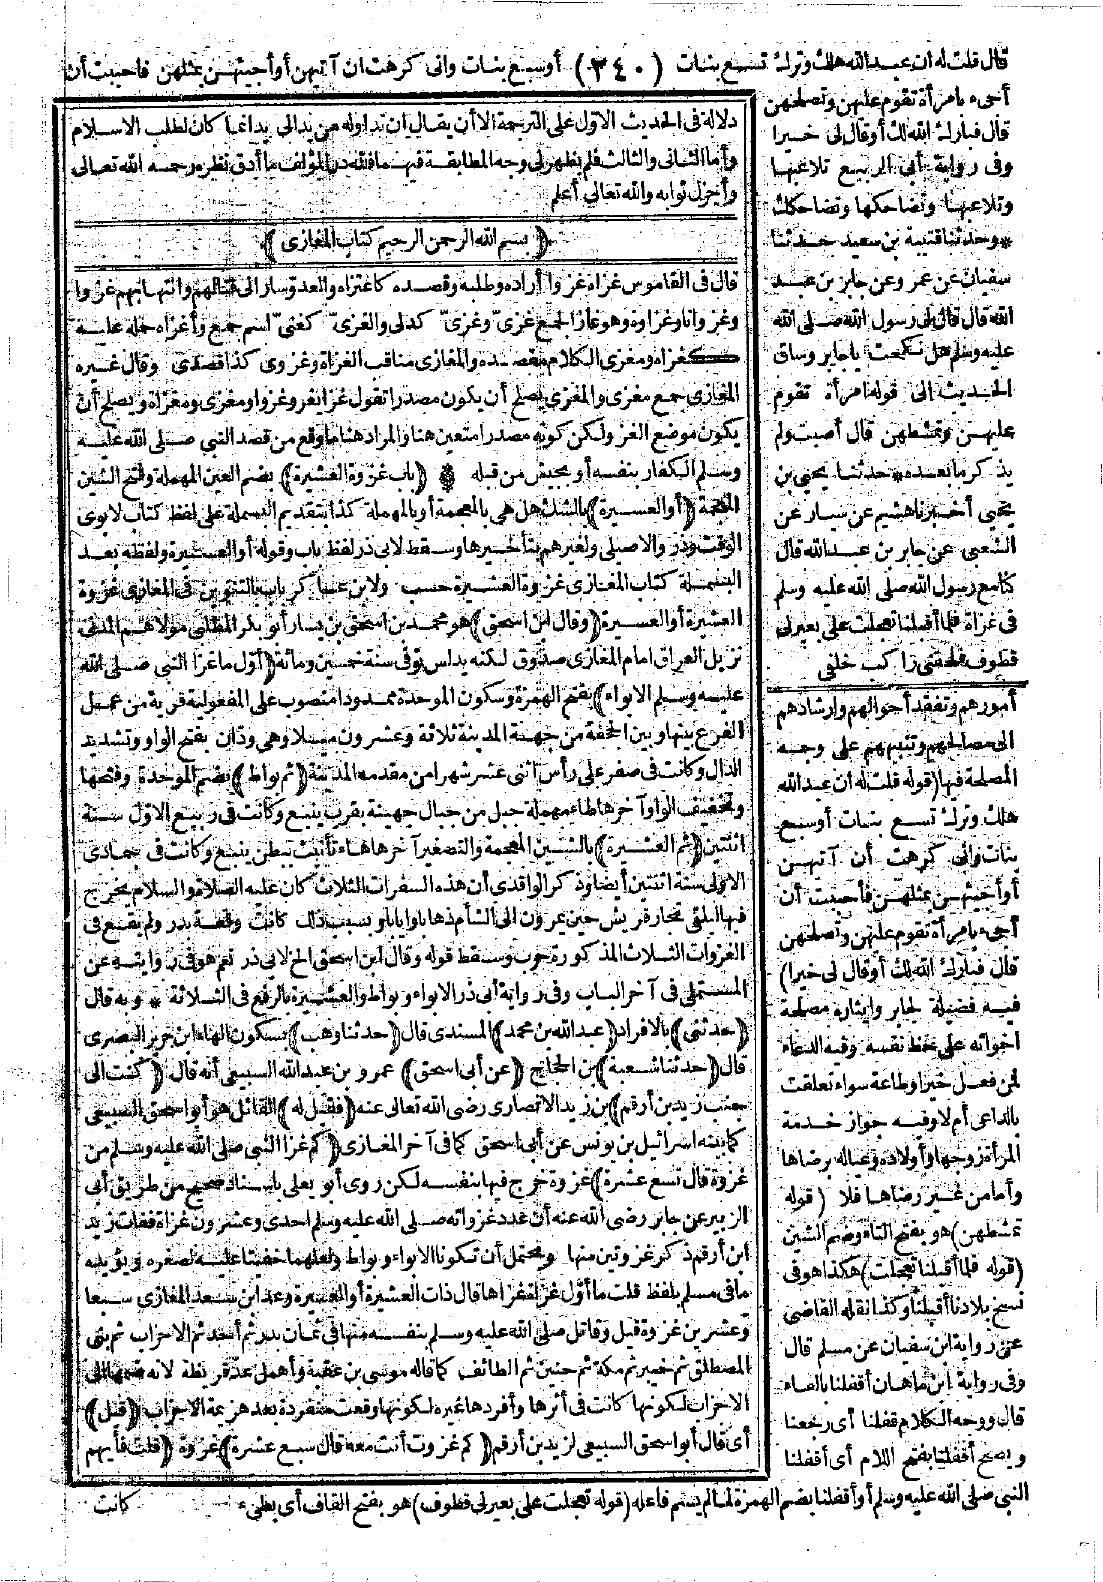 قال قلت له ان عبد الله هلك وترك تسع بنات (٣٤٠) أو سبع بنات وانى كرهت ان آتيهن أو أجيئهن بمثلهن فاحببت أن
أجىء بامرأة تقوم عليهن وتصلحهن
قال فبارك الله لك أو قال لى خيرا
وفى رواية أبى الربيع تلاعبها
وتلاعبك وتضاحكها وتضاحكك
* وحدثنا قتيبة بن سعيد حدثنا
سفيان عن عمرو عن جابر بن عبد
الله قال قال لى رسول الله صلى الله
عليه وسلم هل نكحت يا جابر وساق
الحديث الى قوله امرأة تقوم
عليهن وتمشطهن قال أصبت ولم
يذكر ما بعده * حدثنا يحيى بن
يحيى أخبرنا هشيم عن سيار عن
الشعبى عن جابر بن عبد الله قال
كنا مع رسول الله صلى الله عليه وسلم
فى غزاة فلما أقبلنا تعجلت على بعير لى
قطوف فلحقنى راكب خلفى
أمورهم وتفقد أحوالهم وارشادهم
الى مصالحهم وتنبيههم على وجه
المصلحة فيها (قوله قلت له ان عبد الله
هلك وترك تسع بنات أو سبع
بنات وانى كرهت أن آتيهن
أو أجيئهن بمثلهن فأحببت أن
أجىء بامرأة تقوم عليهن وتصلحهن
قال فبارك الله لك أو قال لى خيرا)
فيه فضيلة لجابر وايثاره مصلحة
اخواته على حظ نفسه وفيه الدعاء
لمن فعل خيرا وطاعة سواء تعلقت
بالداعى أم لا وفيه جواز خدمة
المرأة زوجها وأولاده وعياله برضاها
وأما من غير رضاها فلا (قوله
تمشطهن) هو بفتح التاء وضم الشين
(قوله فلما أقبلنا تعجلت) هكذا هو فى
نسخ بلادنا أقبلنا وكذا نقله القاضى
عن رواية ابن سفيان عن مسلم قال
وفى رواية ابن ماهان أقفلنا بالفاء
قال ووجه الكلام قفلنا أى رجعنا
ويصح أقفلنا بفتح اللام أى أقفلنا
النبى صلى الله عليه وسلم أو أقفلنا بضم الهمزة لما لم يسم فاعله (قوله تعجلت على بعير لى قطوف) هو بفتح القاف أى بطىء
كانت
دلالة فى الحديث الاول على الترجمة الا أن يقال ان تداوله من يد الى يد انما كان لطلب الاسلام
وأما الثانى والثالث فلم يظهر لى وجه المطابقة فيهما فلله در المؤلف ما أدق نظره رحمه الله تعالى
وأجزل ثوابه والله تعالى أعلم
﴿ بسم الله الرحمن الرحيم كتاب المغازى ﴾
قال فى القاموس غزاه غزوا أراده وطلبه وقصده كاغتزاه والعدو سار الى قتالهم وانتهابهم غزوا
وغزوانا وغزاوة وهو غاز الجمع غزىّ وغزىّ كدلى والغزىّ كغنىّ اسم جمع وأغزاه حمله عليه
كغزاه ومغزى الكلام مقصده والمغازى مناقب الغزاة وغزوى كذا قصدى وقال غيره
المغازى جمع مغزى والمغزى يصلح أن يكون مصدرا تقول غزا يغزو غزوا ومغزى ومغزاة ويصلح أن
يكون موضع الغزو لكن كونه مصدرا متعين هنا والمراد هنا ما وقع من قصد النبى صلى الله عليه
وسلم الكفار بنفسه أو بجيش من قبله * (باب غزوة العشيرة) بضم العين المهملة وفتح الشين
المعجمة (أو العسيرة) بالشك هل هى بالمعجمة أو بالمهملة كذا بتقديم البسملة على لفظ كتاب لابوى
الوقت وذر والاصيلى ولغيرهم بتأخيرها وسقط لابى ذر لفظ باب وقوله أو العسيرة ولفظه بعد
البسملة كتاب المغازى غزوة العشيرة حسب ولابن عساكر باب بالتنوين فى المغازى غزوة
العشيرة أو العسيرة (وقال ابن اسحق) هو محمد بن اسحق بن يسار أبو بكر المطلبى مولاهم المدنى
نزيل العراق امام المغازى صدوق لكنه يدلس توفى سنة خمسين ومائة (أول ما غزا النبى صلى الله
عليه وسلم الابواء) بفتح الهمزة وسكون الموحدة ممدودا منصوب على المفعولية قرية من عمل
الفرع بينها وبين الجحفة من جهة المدينة ثلاثة وعشرون ميلا وهى ودّان بفتح الواو وتشديد
الدال وكانت فى صفر على رأس اثنى عشر شهرا من مقدمه المدينة (ثم بواط) بضم الموحدة وفتحها
وتخفيف الواو آخرها طاء مهملة جبل من جبال جهينة بقرب ينبع وكانت فى ربيع الاول سنة
اثنتين (ثم العشيرة) بالشين المعجمة والتصغير آخرها هاء تأنيث ببطن ينبع وكانت فى جمادى
الاولى سنة اثنتين أيضا وذكر الواقدى أن هذه السفرات الثلاث كان عليه الصلاة والسلام يخرج
فيها ليلقى تجار قريش حين يمرون الى الشأم ذهابا وايابا وبسبب ذلك كانت وقعة بدر ولم يقع فى
الغزوات الثلاث المذكورة حرب وسقط قوله وقال ابن اسحق الخ لابى ذر نعم هو فى روايته عن
المستملى فى آخر الباب وفى رواية أبى ذر الابواء وبواط والعشيرة بالرفع فى الثلاثة * وبه قال
(حدثنى) بالافراد (عبد الله بن محمد) المسندى قال (حدثنا وهب) بسكون الهاء ابن جرير البصرى
قال (حدثنا شعبة) بن الحجاج (عن أبى اسحق) عمرو بن عبد الله السبيعى أنه قال (كنت الى
جنب زيد بن أرقم) بن زيد الانصارى رضى الله تعالى عنه (فقيل له) القائل هو أبو اسحق السبيعى
كما بينه اسرائيل بن يونس عن أبى اسحق كما فى آخر المغازى (كم غزا النبى صلى الله عليه وسلم من
غزوة قال تسع عشرة) غزوة خرج فيها بنفسه لكن روى أبو يعلى باسناد صحيح من طريق أبى
الزبير عن جابر رضى الله عنه أن عدد غزواته صلى الله عليه وسلم احدى وعشرون غزاة ففات زيد
ابن أرقم ذكر غزوتين منها ويحتمل أن تكونا الابواء وبواط ولعلهما خفيتا عليه لصغره ويؤيده
ما فى مسلم بلفظ قلت ما أول غزاة غزاها قال ذات العشيرة أو العسيرة وعد ابن سعد المغازى سبعا
وعشرين غزوة قيل وقاتل صلى الله عليه وسلم بنفسه منها فى ثمان بدر ثم أحد ثم الاحزاب ثم بنى
المصطلق ثم خيبر ثم مكة ثم حنين ثم الطائف كما قاله موسى بن عقبة وأهمل عد قريظة لانه ضمها الى
الاحزاب لكونها كانت فى أثرها وأفردها غيره لكونها وقعت منفردة بعد هزيمة الاحزاب (قيل)
أى قال أبو اسحق السبيعى لزيد بن أرقم (كم غزوت أنت معه قال سبع عشرة) غزوة (قلت فأيهم